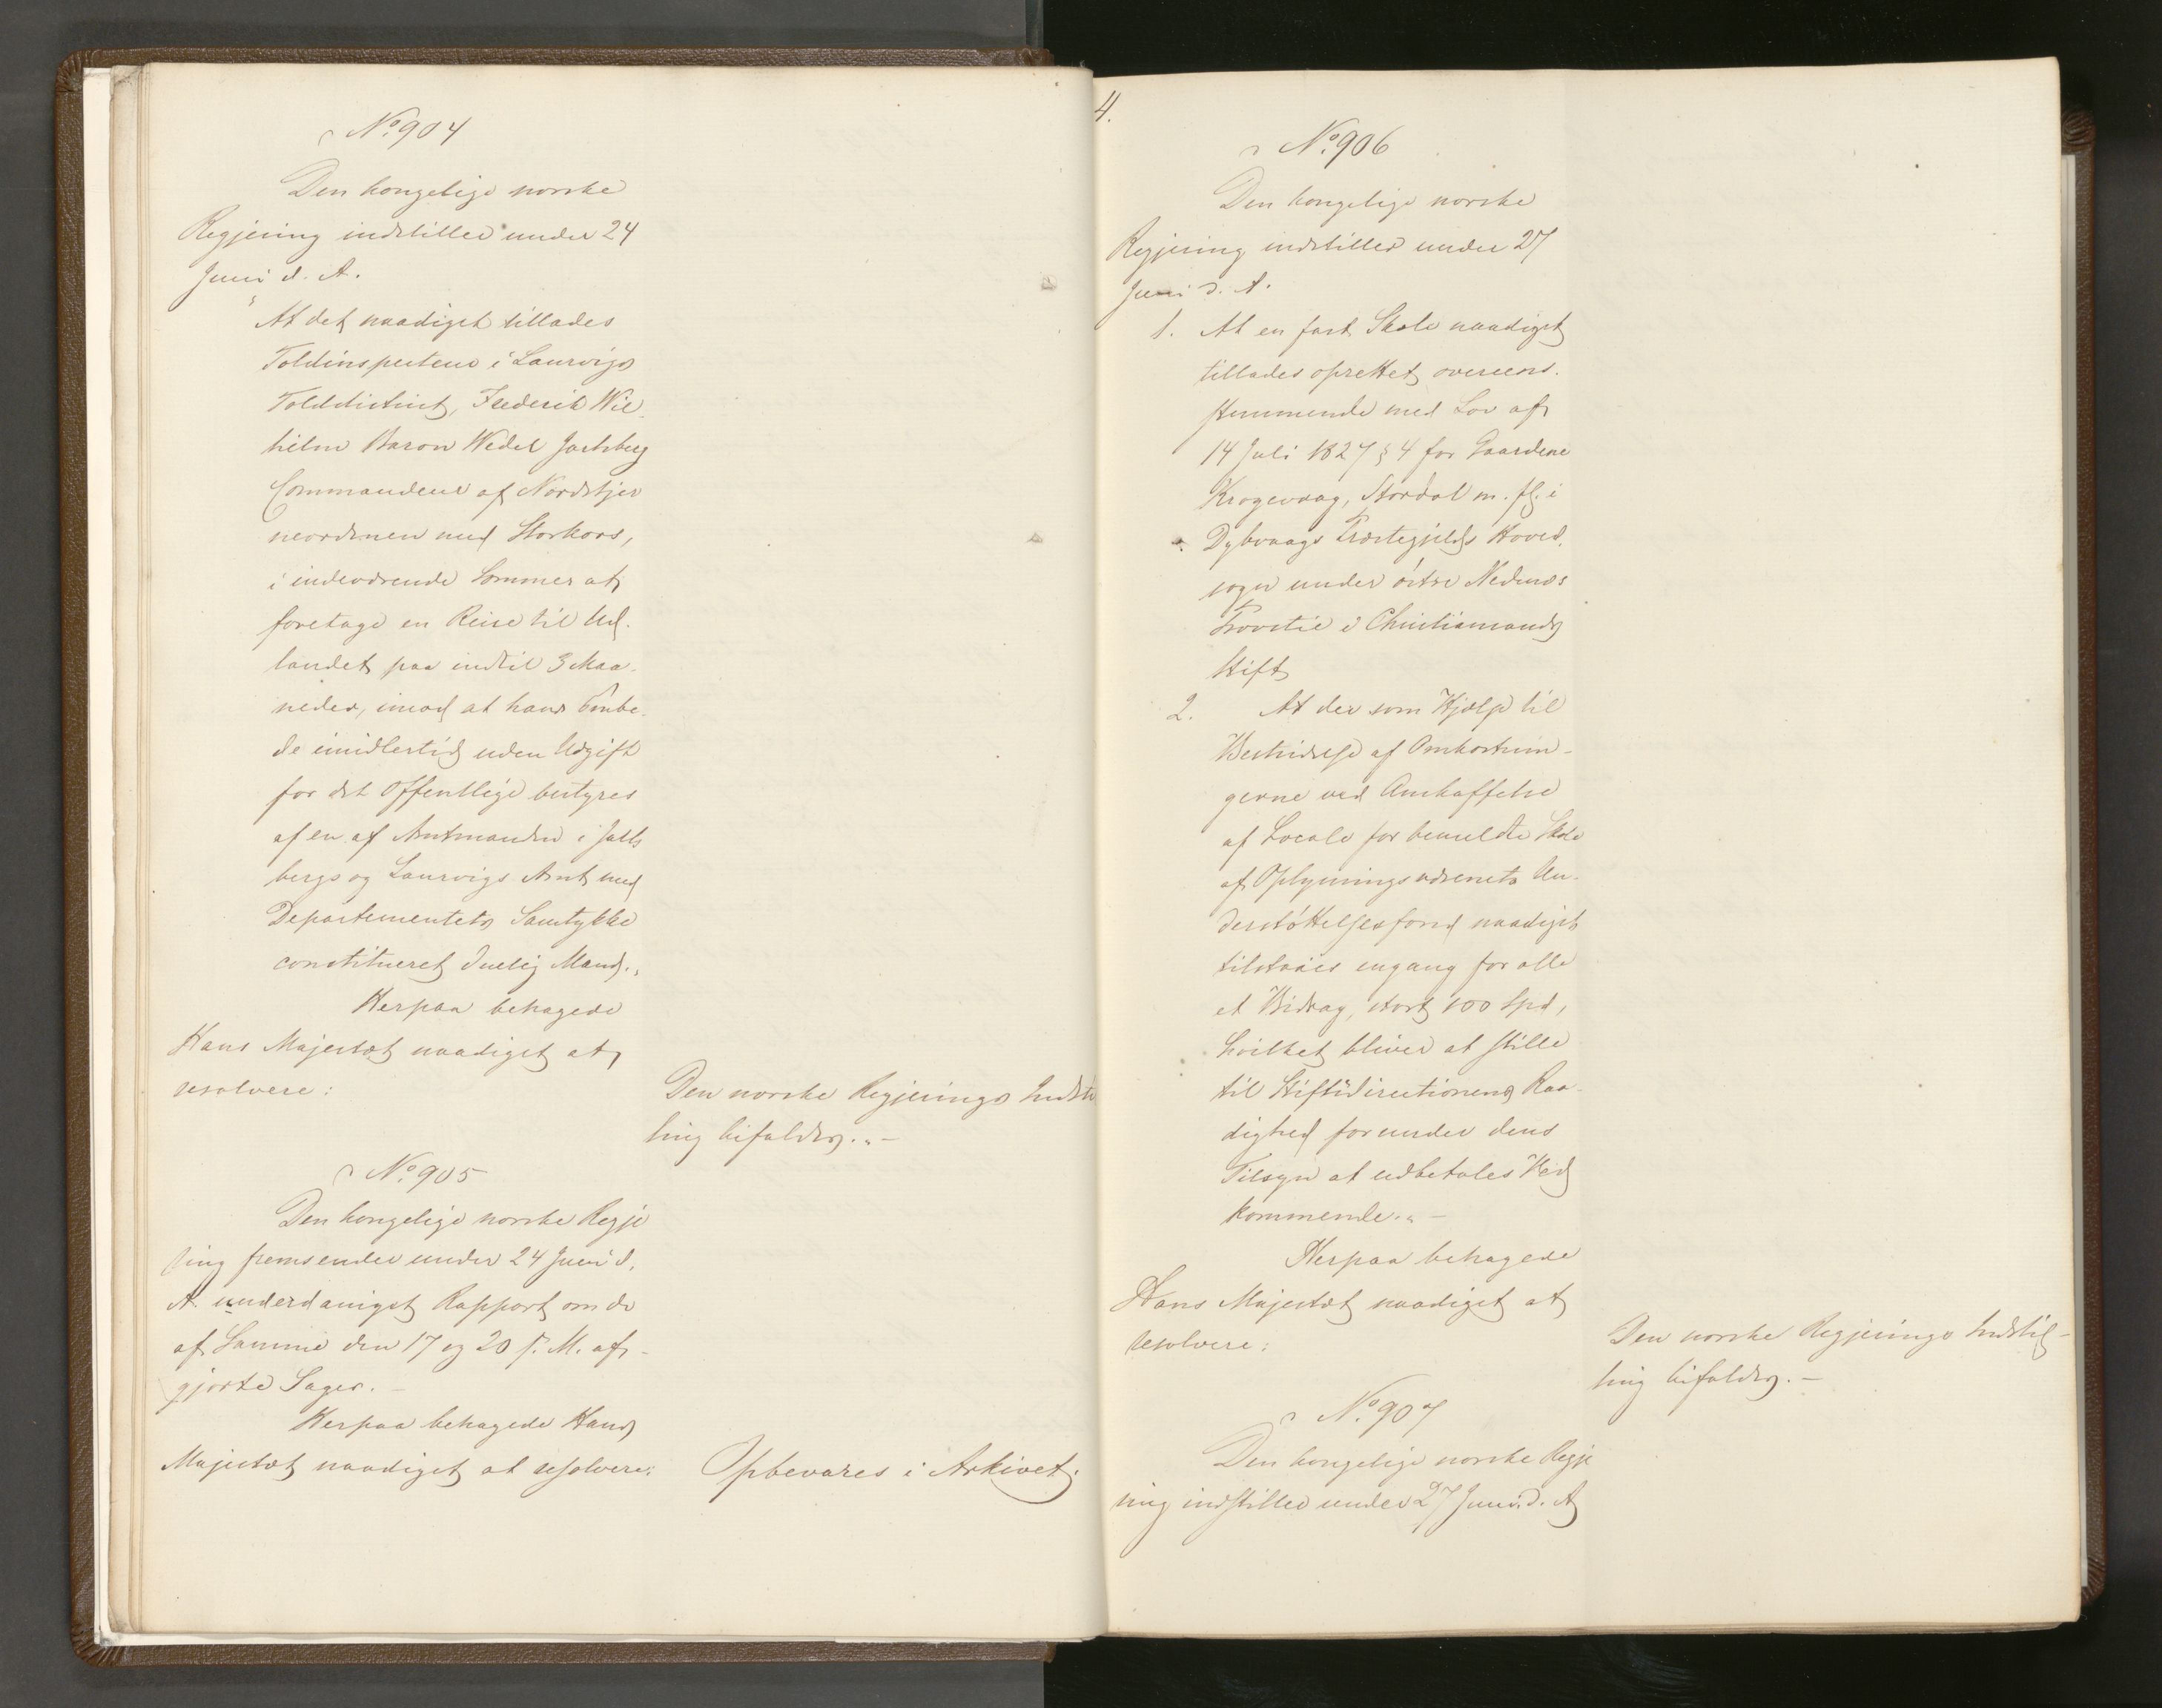 No. 904
Den kongelige norske
Regjering indstiller under 24
Juni d. A.
"At det naadigst tillades
Toldinspecteur i Laurvigs
Tolddistrict, Frederik Wil-
helm Baron Wedel Jarlsberg
Commandeur af Nordstjer
neordenen med Storkors,
i indeværende Sommer at
foretage en Reise til Ud-
landet paa indtil 3 Maa-
neder, imod at hans Embe-
de imidlertid uden Udgift
for det Offentlige bestyres
af en af Amtmanden i Jarls
bergs og Laurvigs Amt med
Departementets Samtykke
constitueret duelig Mand."
Herpaa behagede
Hans Majestæt naadigst at
resolvere:
Den norske Regjerings Indstil
ling bifaldes."-
No. 905
Den kongelige norske Regje
ring fremsender under 24 Juni d.
A. underdanigst Rapport om de
af Samme den 17 og 20 s. M. af-
gjorte Sager. -
Herpaa behagede Hans
Majestæt naadigst at resolvere:
Opbevares i Arkivet.
4.
No. 906
Den kongelige norske
Regjering indstiller under 27
Juni d. A.
1. At en fast Skole naadigst
tillades oprettet overeens-
stemmende med Lov af
14 Juli 1827 § 4 for Gaardene
Krogevaag, Stordal m. fl. i
Dybvaags Præstegjelds Hoved-
sogn under østre Nedenæs
Provstie i Christiansands
Stift
2. At der som Hjælp til
Bestridelse af Omkostnin-
gerne ved Anskaffelse
af Locale for bemeldte Skole
af Oplysningsvæsenets Un-
derstøttelsesfond naadigst
tilstaaes engang for alle
et Bidrag, stort 100 Spd,
hvilket bliver at stille
til Stiftsdirectionens Raa-
dighed for under dens
Tilsyn at udbetales Ved
kommende."-
Herpaa behagede
Hans Majestæt naadigst at
resolvere:
Den norske Regjerings Indstil-
ling bifaldes. -
No. 907
Den kongelige norske Regje
ring indstiller under 27 Juni d. A